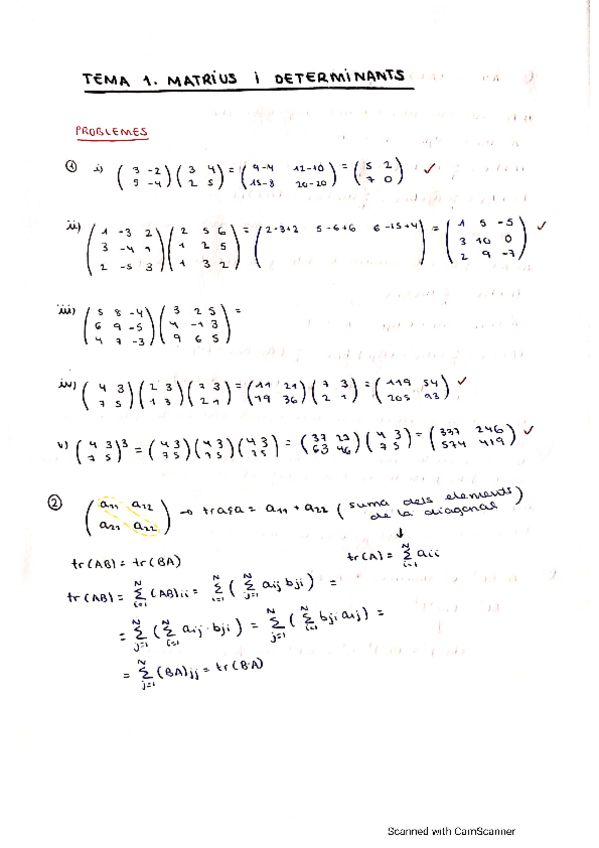 TEMA 1. MATRIUS i DETERMINANTS
PROBLEMES
① i) (3 -2; 5 -4)(3 4; 2 5) = (9-4 12-10; 15-8 20-20) = (5 2; 7 0) ✓
ii) (1 -3 2; 3 -4 1; 2 -5 3)(2 5 6; 1 2 5; 1 3 2) = (2-3+2 5-6+6 6-15+4) = (1 5 -5; 3 10 0; 2 9 -7) ✓
iii) (5 8 -4; 6 9 -5; 4 7 -3)(3 2 5; 4 -1 3; 9 6 5) =
iv) (4 3; 7 5)( 3; 1 3)( 3; 2 1) = (11 21; 19 36)(7 3; 2 1) = (119 54; 205 93) ✓
v) (4 3; 7 5)³ = (4 3; 7 5)(4 3; 7 5)(4 3; 7 5) = (37 27; 63 46)(4 3; 7 5) = (337 246; 574 419) ✓
② (a11 a12; a21 a22) → trasa = a11 + a22 (suma dels elements de la diagonal)
tr(AB) = tr(BA)
tr(A) = Σ(i=1, N) aii
tr(AB) = Σ(i=1, N) (AB)ii = Σ(i=1, N) (Σ(j=1, N) aij bji) =
= Σ(j=1, N) (Σ(i=1, N) aij · bji) = Σ(j=1, N) (Σ(i=1, N) bji aij) =
= Σ(j=1, N) (BA)jj = tr(B·A)
Scanned with CamScanner